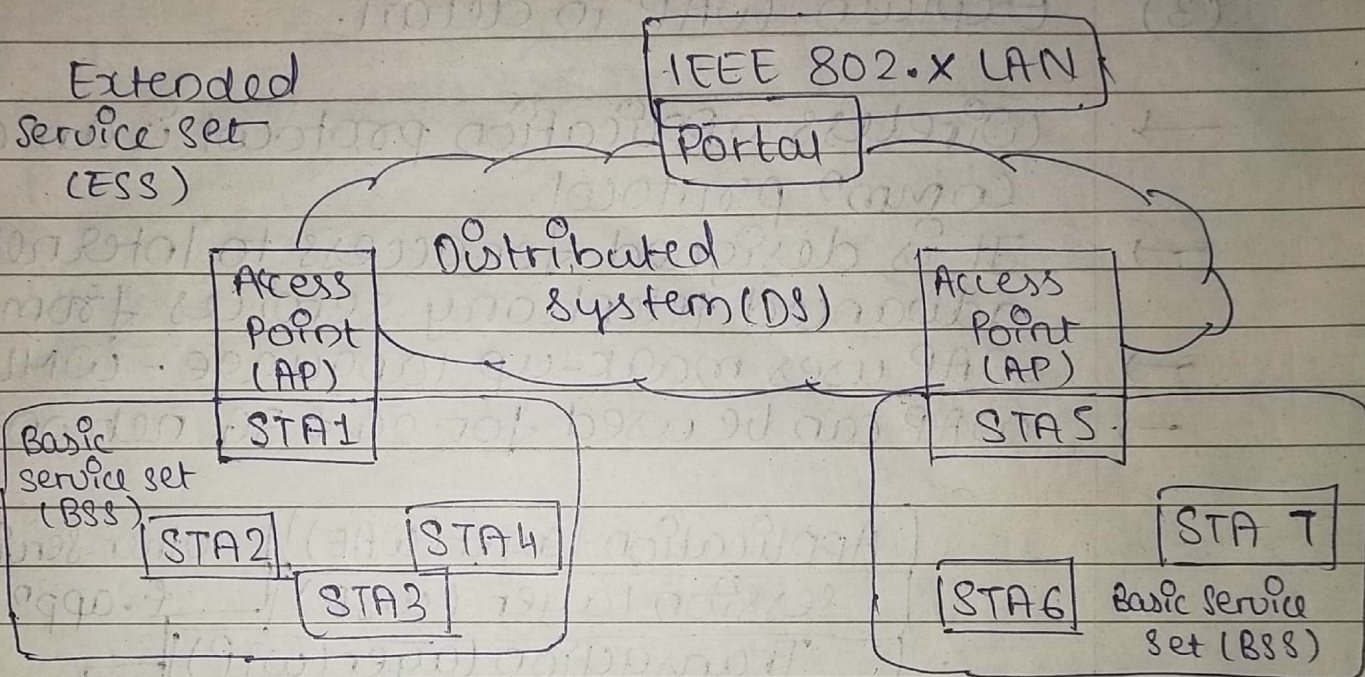 Extended
Service set
(ESS)
IEEE 802.X LAN
Portal
Distributed
System (DS)
Access
Point
(AP)
STA1
Access
Point
(AP)
STA5
Basic
service set
(BSS)
STA2
STA4
STA3
STA 7
STA6
Basic Service
Set (BSS)